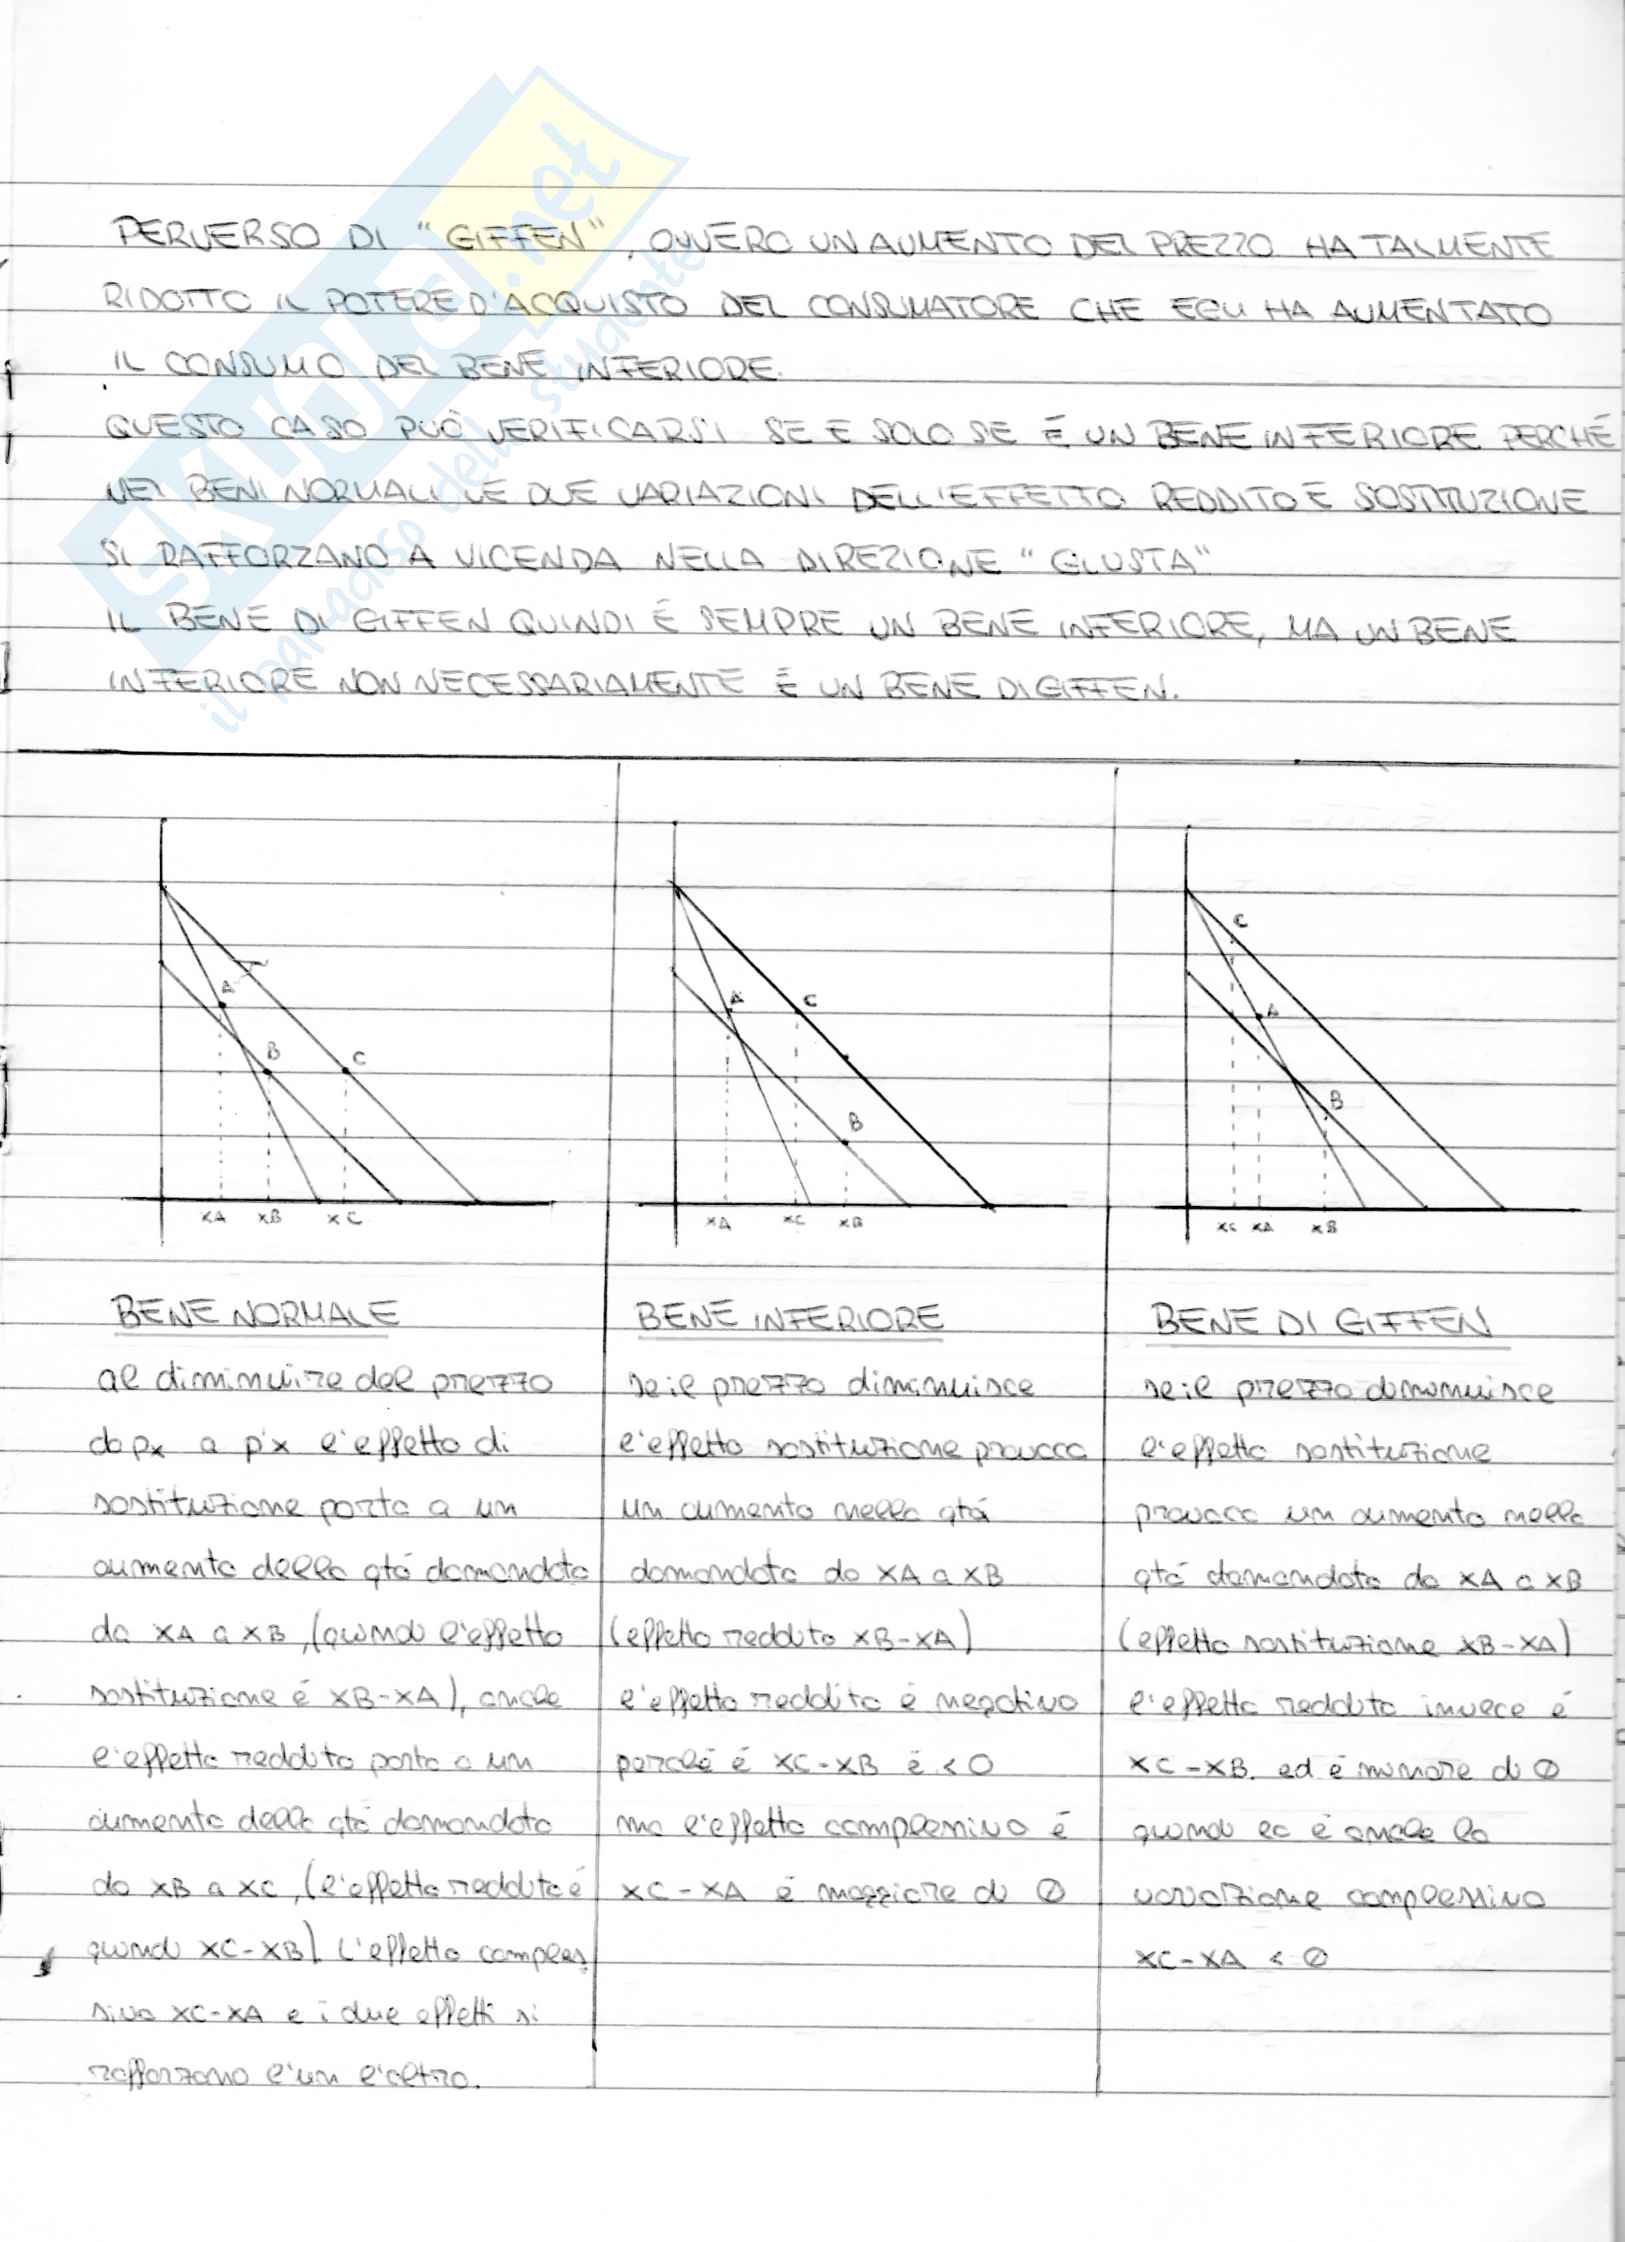 SKUOLA.net
il paradiso dello studente
PERVERSO DI "GIFFEN", OVVERO UN AUMENTO DEL PREZZO HA TALMENTE
RIDOTTO IL POTERE D'ACQUISTO DEL CONSUMATORE CHE EGLI HA AUMENTATO
IL CONSUMO DEL BENE INFERIORE.
QUESTO CASO PUÒ VERIFICARSI SE E SOLO SE É UN BENE INFERIORE PERCHÉ
NEI BENI NORMALI LE DUE VARIAZIONI DELL'EFFETTO REDDITO E SOSTITUZIONE
SI RAFFORZANO A VICENDA NELLA DIREZIONE "GIUSTA"
IL BENE DI GIFFEN QUINDI É SEMPRE UN BENE INFERIORE, MA UN BENE
INFERIORE NON NECESSARIAMENTE É UN BENE DI GIFFEN.
A
B
C
XA XB XC
A
C
B
XA XC XB
C
A
B
XC XA XB
BENE NORMALE
al diminuire del prezzo
da px a p'x l'effetto di
sostituzione porta a un
aumento della qtá domandata
da XA a XB, (quindi l'effetto
sostituzione é XB-XA), anche
l'effetto reddito porta a un
aumento della qtá domandata
da XB a XC, (l'effetto reddito é
quindi XC-XB). L'effetto comples
sivo XC-XA e i due effetti si
rafforzano l'un l'altro.
BENE INFERIORE
se il prezzo diminuisce
l'effetto sostituzione provoca
un aumento nella qtá
domandata da XA a XB
(effetto reddito XB-XA)
l'effetto reddito é negativo
perché é XC-XB é < 0
ma l'effetto complessivo é
XC-XA é maggiore di 0
BENE DI GIFFEN
se il prezzo dimunuisce
l'effetto sostituzione
provoca un aumento nella
qtá domandata da XA a XB
(effetto sostituzione XB-XA)
l'effetto reddito invece é
XC-XB. ed é minore di 0
quindi lo é anche la
variazione complessiva
XC-XA < 0